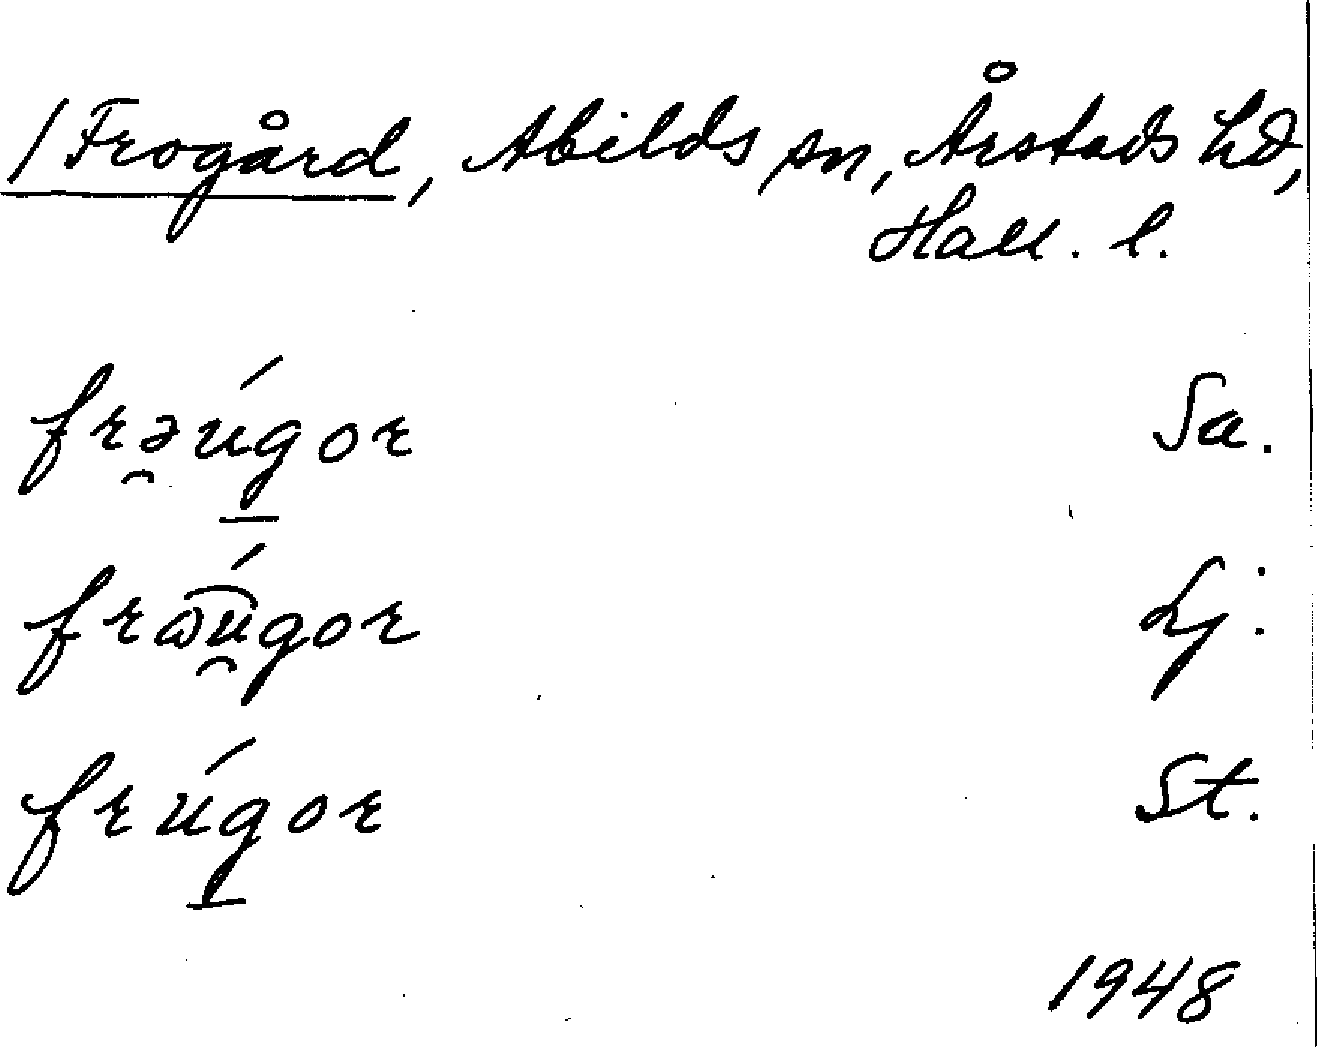 / Frogård, Abilds sn, Årstads hd,
Hall. l.
frə̯úgor Sa.
frɷú̯gor Lj.
frúgor St.
1948